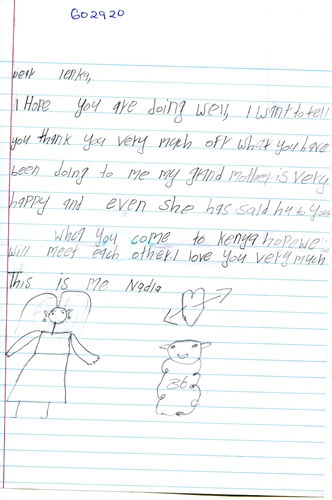 602920
Dear lenka,
I Hope you are doing well, I want to tell
you thank you very much off what you have
been doing to me my grand mother is very
happy and even she has said hy to you
what you come to Kenya hope we
will meet each other. I love you very much
This is me Nadia
36